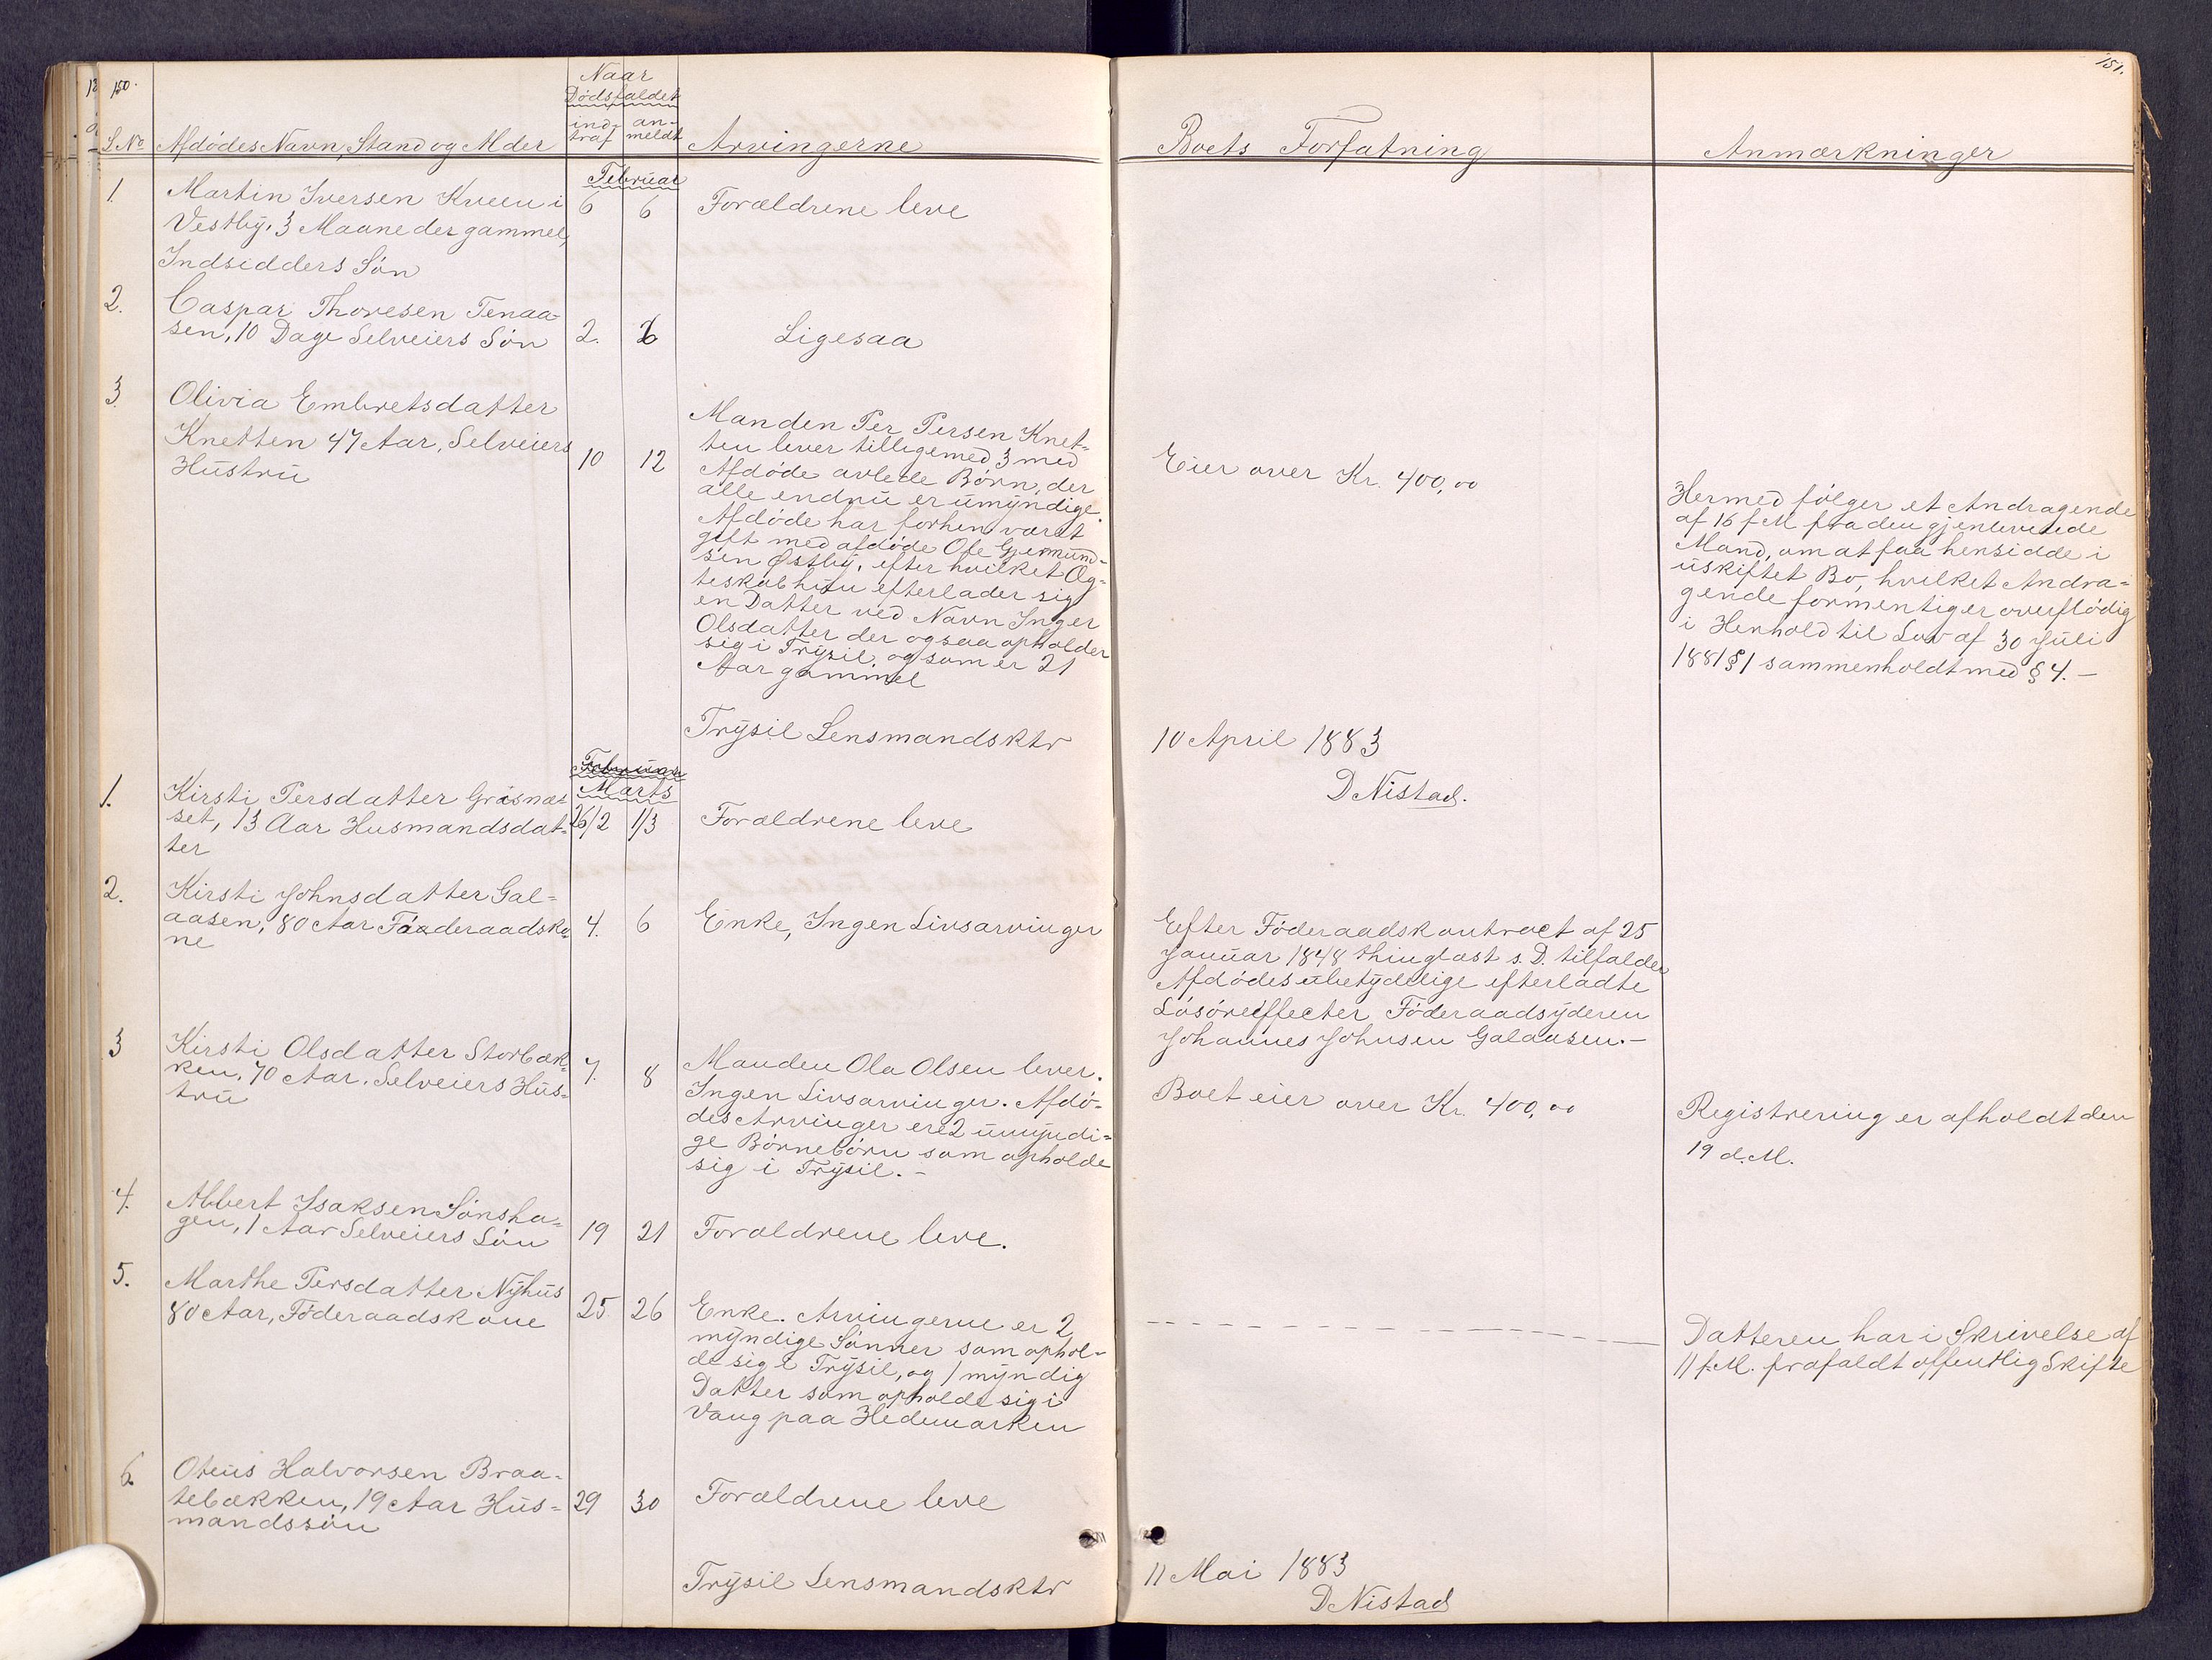 150.
Naar
Dødsfaldet
ind- an-
traf meldt
S.No Afdødes Navn, Stand og Alder Arvingerne
Februar
1. Martin Iversen Kveen i 6 6 Forældrene leve
Vestby, 3 Maaneder gammel,
Indsidders Søn
2. Caspar Thoresen Tenaa-
sen, 10 Dage Selveiers Søn 2. 6 Ligesaa
3. Olivia Embretsdatter
Knetten 47 Aar, Selveiers 10 12
Hustru
Manden Per Persen Knet-
ten lever tilligemed 3 med
Afdøde avlede Børn, der
alle endnu er umyndige.
Afdøde har forhen været
gift med afdøde Ole Gjermund-
sen Østby, efter hvilket Æg-
teskab hun efterlader sig
en Datter ved Navn Inger
Olsdatter der ogsaa opholder
sig i Trysil, og som er 21
Aar gammel
Trysil Lensmandsktr
Februar
Marts
1. Kirsti Persdatter Græsnæs-
set, 13 Aar Husmandsdat- 26/2 1/3 Forældrene leve
ter
2. Kirsti Johnsdatter Gal-
aasen, 80 Aar Føderaadsko- 4. 6 Enke, Ingen Livsarvinger
ne
3 Kirsti Olsdatter Storbæk-
ken, 70 Aar. Selveiers Hus- 7. 8
tru
Manden Ola Olsen lever.
Ingen Livsarvinger. Afdø-
des Arvinger ere 2 umyndi-
ge Børnebørn som opholde
sig i Trysil. -
4. Albert Isaksen Sønsha-
gen, 1 Aar Selveiers Søn 19 21 Forældrene leve.
5. Marthe Persdatter Nyhus
80 Aar, Føderaadskone 25 26
Enke. Arvingerne er 2
myndige Sønner som ophol-
de sig i Trysil, og 1 myndig
Datter som opholde sig i
Vang paa Hedemarken
6. Oteus Halvorsen Braa-
tebækken, 19 Aar Hus- 29 30 Forældrene leve
mandssøn
Trysil Lensmandsktr
151.
Boets Forfatning Anmærkninger
Eier over Kr. 400,00
Hermed følger et Andragende
af 16 f M fra den gjenlevende
Mand, om at faa hensidde i
uskiftet Bo, hvilket Andra-
gende formentlig er overflødig
i Henhold til Lov af 30 Juli
1881 § 1 sammenholdt med § 4. -
10 April 1883
D Nistad.
Efter Føderaadskontract af 25
Januar 1848 thinglæst s. D. tilfalder
Afdødes ubetydelige efterladte
Løsøreeffecter Føderaadsyderen
Johannes Johnsen Galaasen. -
Boet eier over Kr. 400,00
Registrering er afholdt den
19 d. M.
Datteren har i Skrivelse af
11 f. M. frafaldt offentlig Skifte
11 Mai 1883
D Nistad